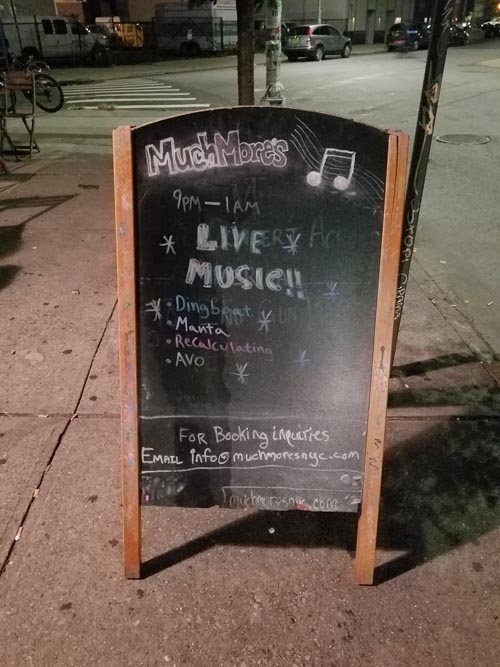 MuchMore's
9PM — 1AM
LIVE
MUSIC!!
• Dingbat
• Manta
• Recalculating
• AVO
FOR Booking inquiries
EMAIL info@muchmoresnyc.com
muchmoresnyc.com